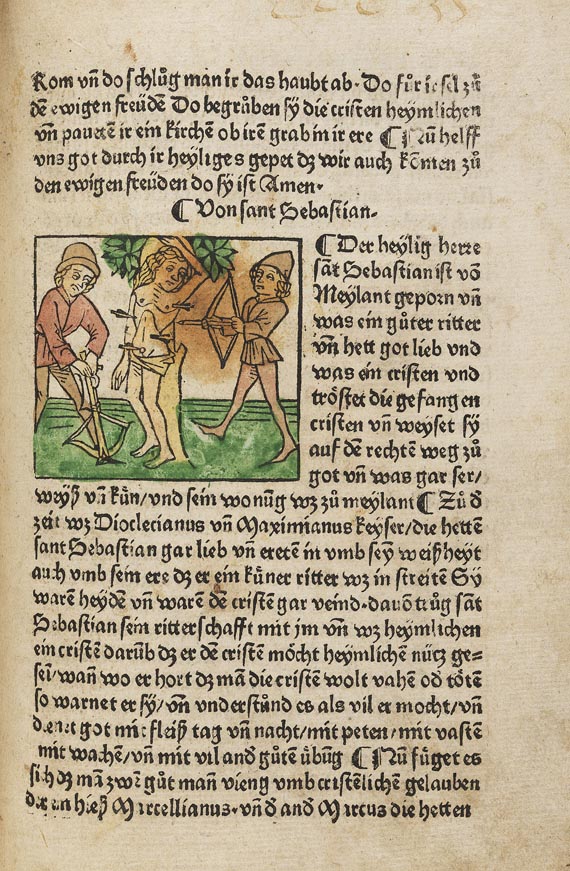 Rom vñ do ſchlůg man ir das haubt ab· Do fůr ir ſel zů
dē ewigen freüdē Do begrůben ſy die criſten heymlichen
vñ pautēn ir ein kirchē ob irē grab in ir ere ¶ Nu helff
vns got durch ir heyliges gepet dz wir auch kōmen zů
den ewigen freüden do ſy iſt Amen·
¶ Von ſant Sebaſtian·
¶ Der heylig herre
ſāt Sebaſtian iſt vō
Meylant geporn vñ
was ein gůter ritter
vñ hett got lieb vnd
was ein criſten vnd
tröſtet die gefangen
criſten vñ weyſet ſy
auf dē rechtē weg zů
got vñ was gar ſer/
weyß vñ kůn/vnd ſein wonūg wz zů meylant ¶ Zů đ
zeit wz Dioclecianus vñ Maximianus keyſer/die hettē
ſant Sebaſtian gar lieb vñ eretē in vmb ſey weißheyt
auch vmb ſein ere dz er ein kůner ritter wz in ſtreitē Sy
warē heydē vñ warē dē criſtē gar veind·dauō trůg ſāt
Sebaſtian ſein ritterſchafft mit jm vñ wz heymlichen
ein criſtē darūb dz er dē criſtē möcht heymlichē nücz ge=
ſeī/wañ wo er hort dz mā die criſtē wolt vahē od tötē
ſo warnet er ſy/vñ vnderſtůnd es als vil er mocht/vñ
dienet got mit fleiß tag vñ nacht/mit peten/mit vaſtē
mit wachē/vñ mit vil anđ gůtē übūg ¶ Nu füget es
ſich dz mā zwē gůt mañ vieng vmb criſtēlichē gelauben
der ein hieß Marcellianus·vñ đ anđ Marcus die hetten